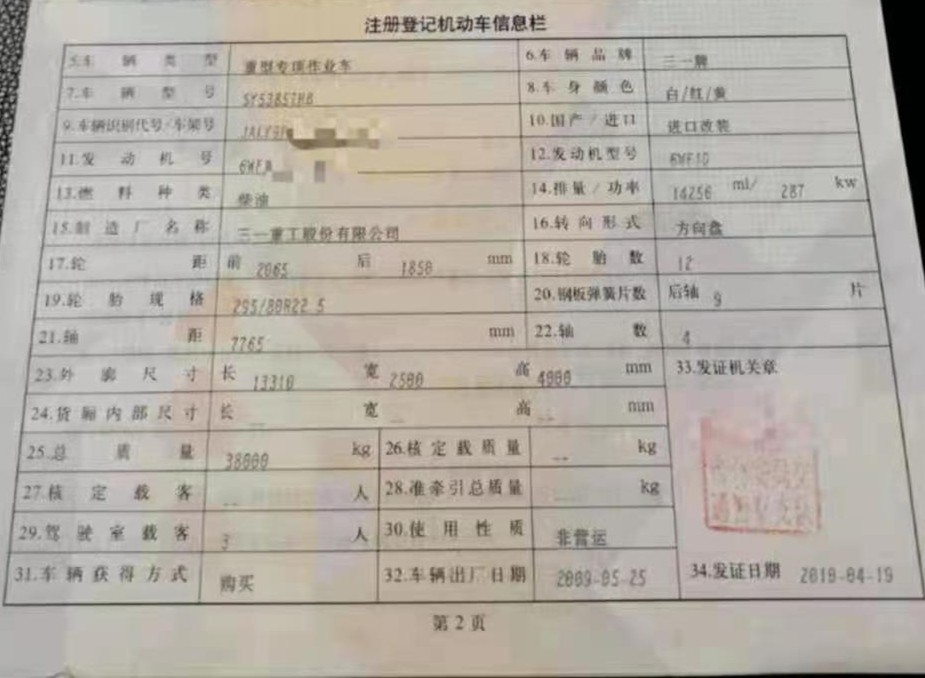 注册登记机动车信息栏
5.车辆类型 重型专项作业车 6.车辆品牌 三一牌
7.车辆型号 SY5385THB 8.车身颜色 白/红/黄
9.车辆识别代号/车架号 10.国产/进口 进口改装
11.发动机号 12.发动机型号 6WF1D
13.燃料种类 柴油 14.排量/功率 14256 ml/ 287 kw
15.制造厂名称 三一重工股份有限公司 16.转向形式 方向盘
17.轮距 前 2065 后 1850 mm 18.轮胎数 12
19.轮胎规格 295/80R22.5 20.钢板弹簧片数 后轴 9 片
21.轴距 7765 mm 22.轴数 4
23.外廓尺寸 长 13310 宽 2500 高 4000 mm 33.发证机关章
24.货厢内部尺寸 长 -- 宽 -- 高 -- mm
25.总质量 38000 kg 26.核定载质量 -- kg
27.核定载客 人 28.准牵引总质量 -- kg
29.驾驶室载客 3 人 30.使用性质 非营运
31.车辆获得方式 购买 32.车辆出厂日期 2009-05-25 34.发证日期 2010-04-19
第2页